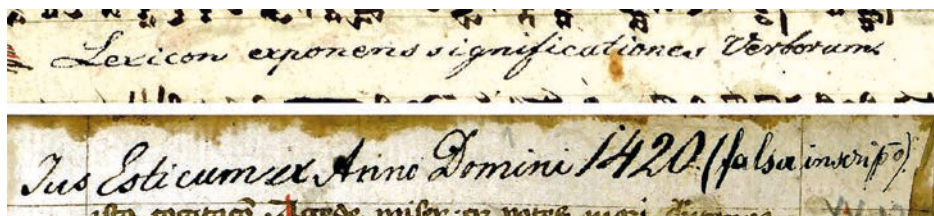 Lexicon exponens significationes Verborum
Jus Esticum ex Anno Domini 1420 (falsa inscripō)